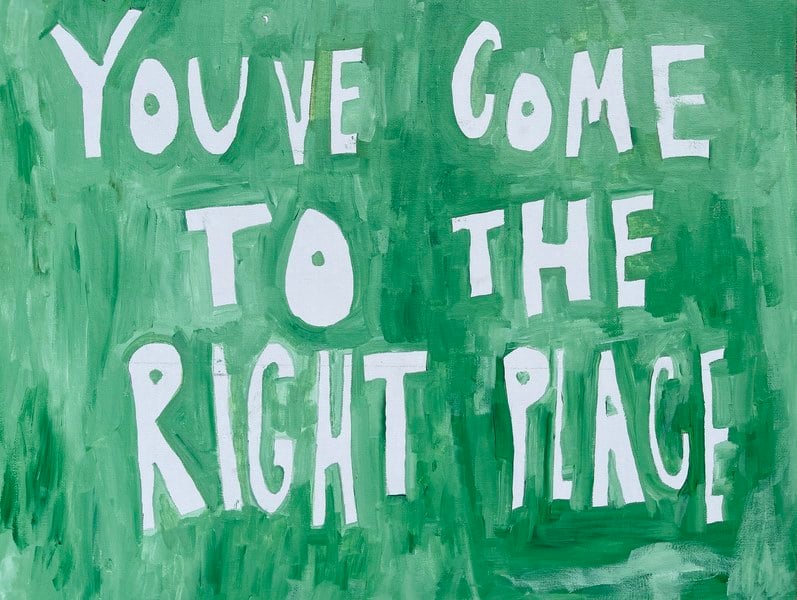 YOU'VE COME
TO THE
RIGHT PLACE